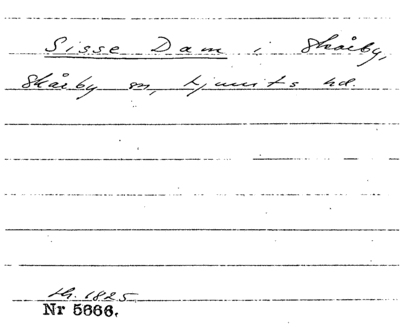 Sisse Dam i Skårby,
Skårby sn, Ljunits hd.
th. 1825
Nr 5666.